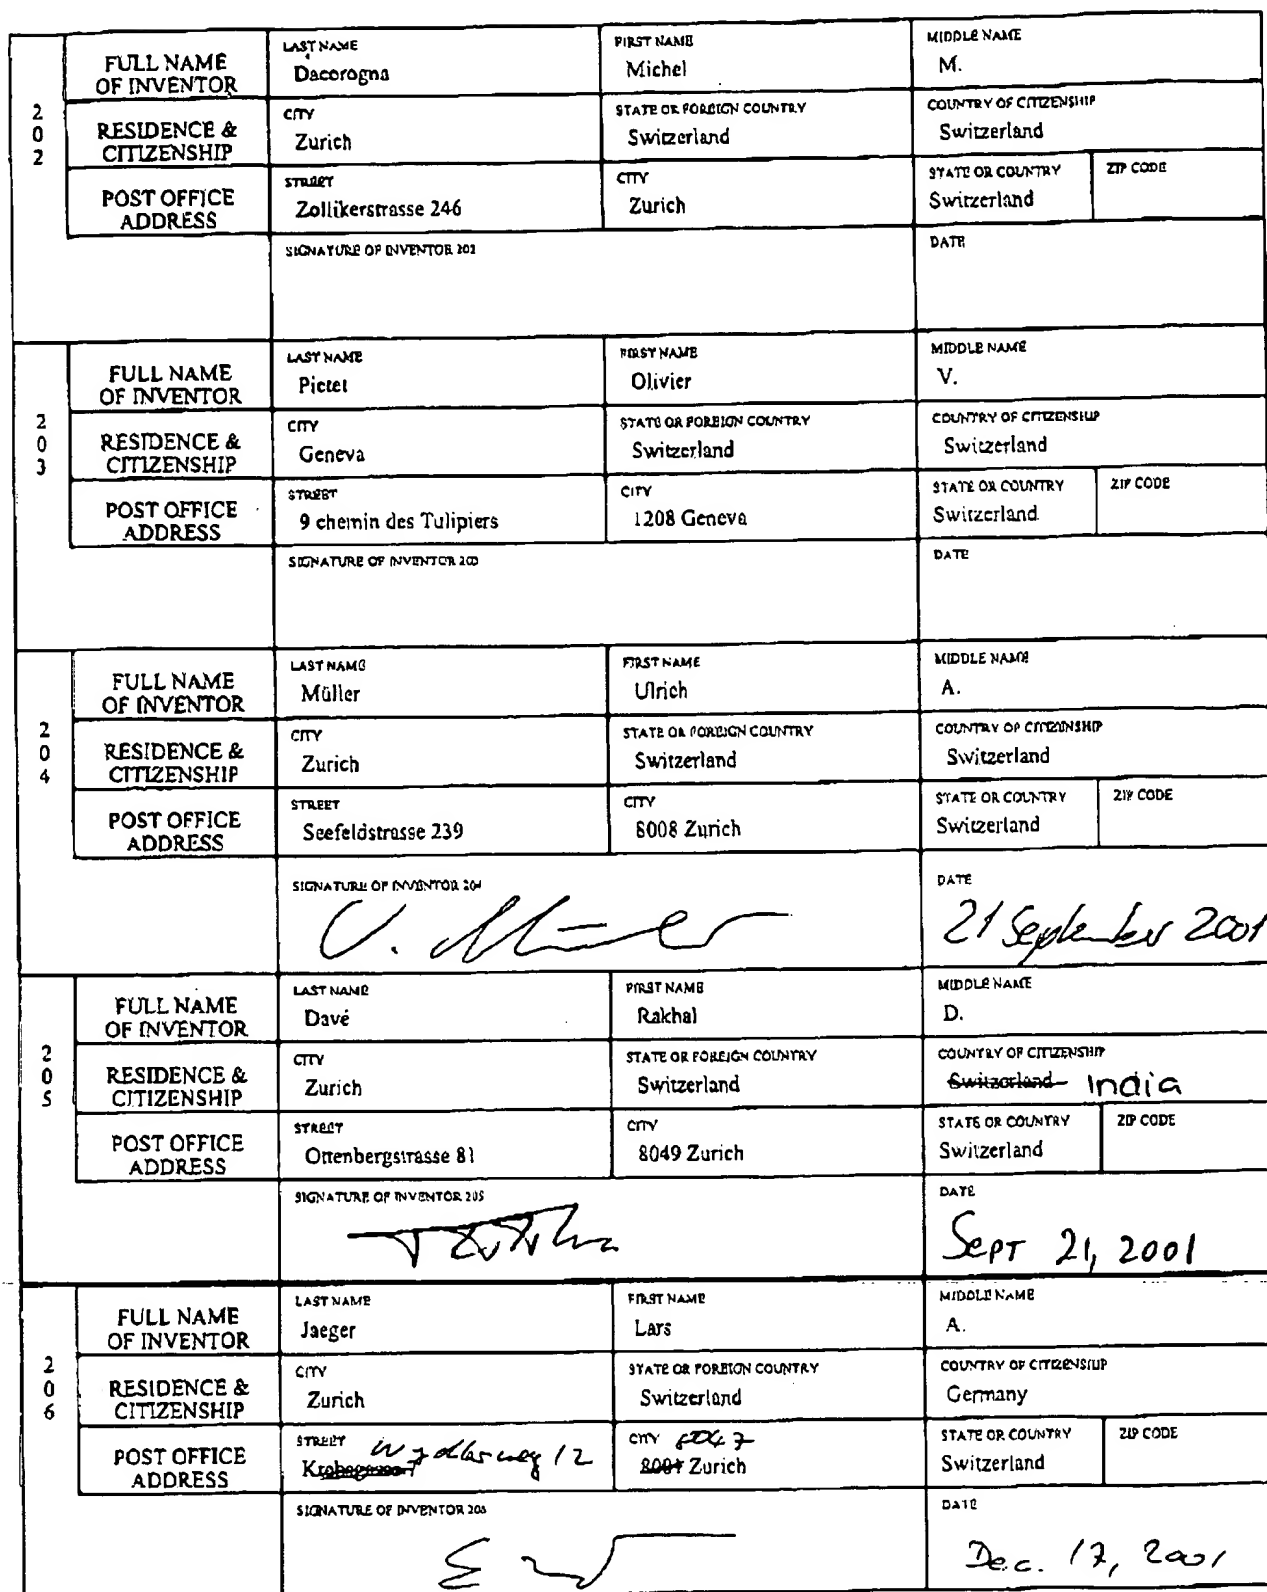 202
FULL NAME OF INVENTOR
LAST NAME
Dacorogna
FIRST NAME
Michel
MIDDLE NAME
M.
RESIDENCE & CITIZENSHIP
CITY
Zurich
STATE OR FOREIGN COUNTRY
Switzerland
COUNTRY OF CITIZENSHIP
Switzerland
POST OFFICE ADDRESS
STREET
Zollikerstrasse 246
CITY
Zurich
STATE OR COUNTRY
Switzerland
ZIP CODE
SIGNATURE OF INVENTOR 202
DATE
203
FULL NAME OF INVENTOR
LAST NAME
Pictet
FIRST NAME
Olivier
MIDDLE NAME
V.
RESIDENCE & CITIZENSHIP
CITY
Geneva
STATE OR FOREIGN COUNTRY
Switzerland
COUNTRY OF CITIZENSHIP
Switzerland
POST OFFICE ADDRESS
STREET
9 chemin des Tulipiers
CITY
1208 Geneva
STATE OR COUNTRY
Switzerland
ZIP CODE
SIGNATURE OF INVENTOR 203
DATE
204
FULL NAME OF INVENTOR
LAST NAME
Müller
FIRST NAME
Ulrich
MIDDLE NAME
A.
RESIDENCE & CITIZENSHIP
CITY
Zurich
STATE OR FOREIGN COUNTRY
Switzerland
COUNTRY OF CITIZENSHIP
Switzerland
POST OFFICE ADDRESS
STREET
Seefeldstrasse 239
CITY
8008 Zurich
STATE OR COUNTRY
Switzerland
ZIP CODE
SIGNATURE OF INVENTOR 204
DATE
21 September 2001
205
FULL NAME OF INVENTOR
LAST NAME
Davé
FIRST NAME
Rakhal
MIDDLE NAME
D.
RESIDENCE & CITIZENSHIP
CITY
Zurich
STATE OR FOREIGN COUNTRY
Switzerland
COUNTRY OF CITIZENSHIP
Switzerland India
POST OFFICE ADDRESS
STREET
Ottenbergstrasse 81
CITY
8049 Zurich
STATE OR COUNTRY
Switzerland
ZIP CODE
SIGNATURE OF INVENTOR 205
DATE
Sept 21, 2001
206
FULL NAME OF INVENTOR
LAST NAME
Jaeger
FIRST NAME
Lars
MIDDLE NAME
A.
RESIDENCE & CITIZENSHIP
CITY
Zurich
STATE OR FOREIGN COUNTRY
Switzerland
COUNTRY OF CITIZENSHIP
Germany
POST OFFICE ADDRESS
STREET
Wydlerweg 12
CITY 8047
8001 Zurich
STATE OR COUNTRY
Switzerland
ZIP CODE
SIGNATURE OF INVENTOR 206
DATE
Dec. 17, 2001